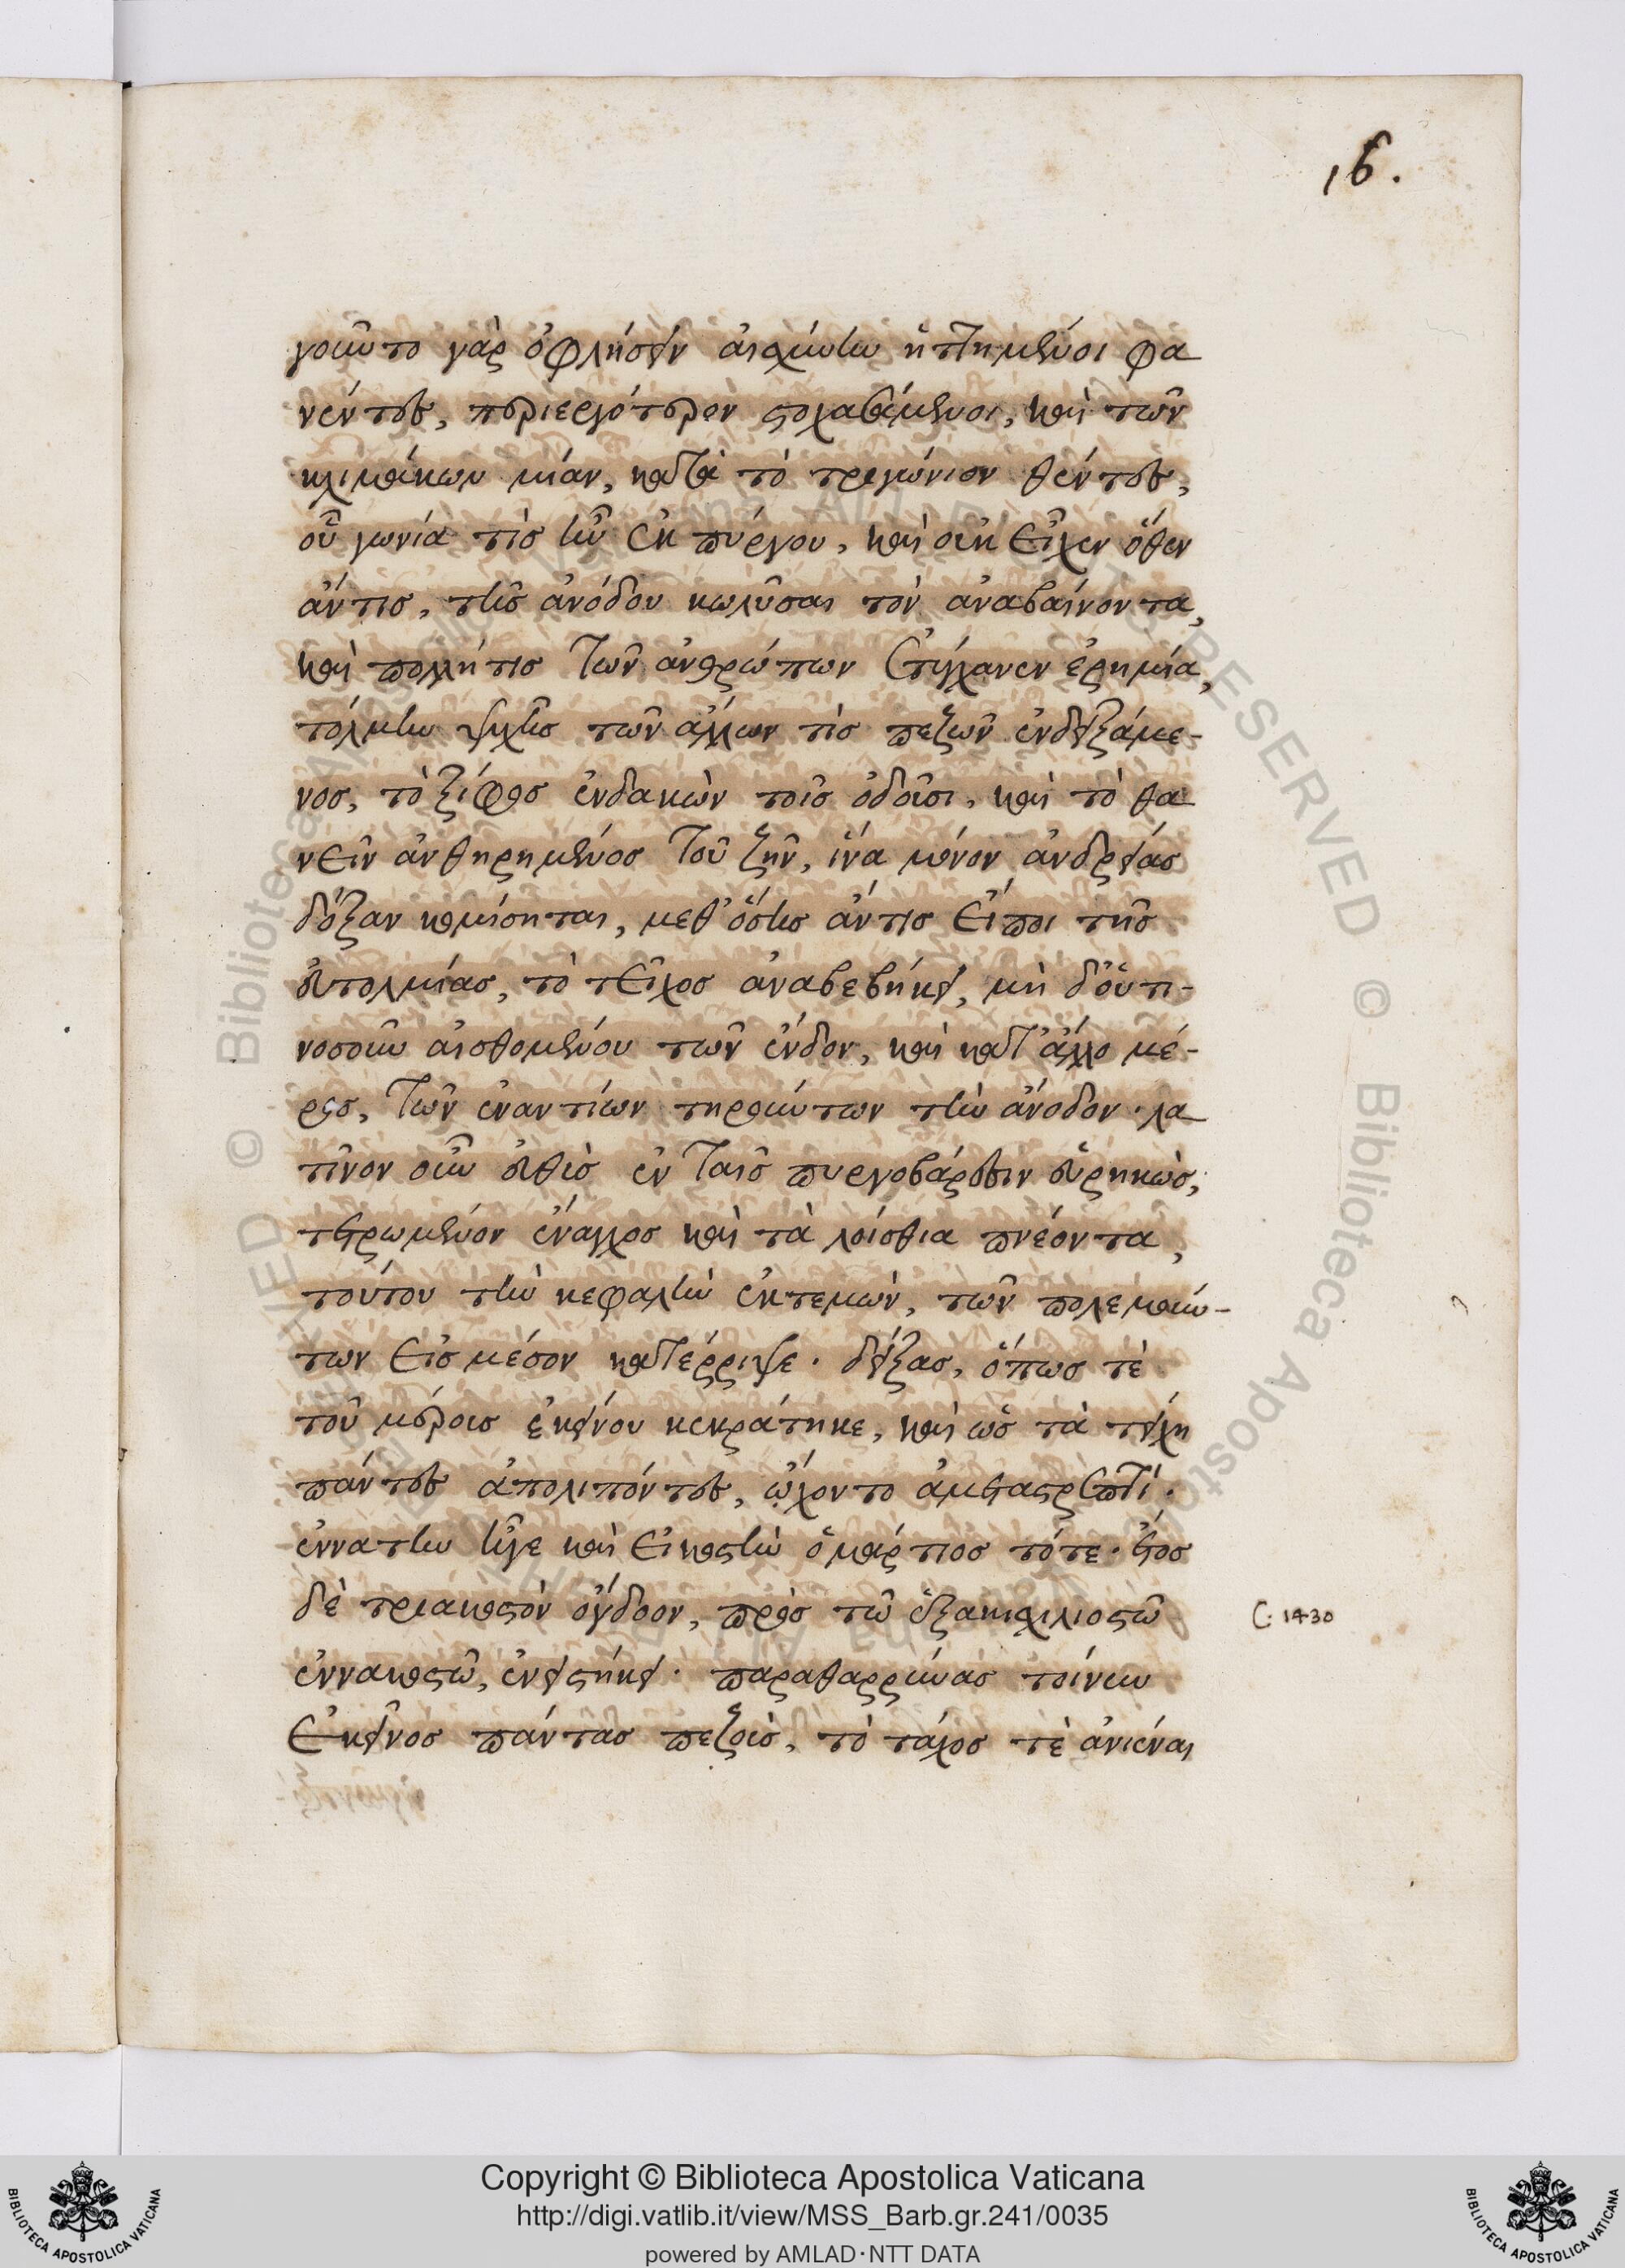 16.
γοιῶντο γὰρ ὀφλήσειν αἰσχύνην ἡττημένοι φα
νέντες, περιεργότερον στοχασάμενοι, καὶ τῶν
κλιμάκων μίαν, κατὰ τὸ τριγώνιον θέντες,
οὗ γωνία τὶς ἦν ἐκ πύργου, καὶ οὐκ εἶχεν ὅθεν
ἄν τις, τῆς ἀνόδου κωλῦσαι τὸν ἀναβαίνοντα,
καὶ πολλή τις τῶν ἀνθρώπων ἐτύγχανεν ἐρημία,
τόλμην ψυχῆς τῶν ἄλλων τὶς πεζῶν ἐνδειξάμε-
νος, τὸ ξίφος ἐνδακὼν τοῖς ὀδοῦσι, καὶ τὸ θα
νεῖν ἀνθηρημένος τοῦ ζῆν, ἵνα μόνον ἀνδρείας
δόξαν κομίσηται, μεθ' ὅσης ἄν τις εἴποι τῆς
εὐτολμίας, τὸ τεῖχος ἀναβεβήκει, μὴ δ' οὗτι-
νοσοῦν αἰσθομένου τῶν ἔνδον, καὶ κατ' ἄλλο μέ-
ρος, τῶν ἐναντίων τηρούντων τὴν ἄνοδον· λα
τῖνον οὖν εὐθὺς ἐν ταῖς πυργοβάρεσιν εὑρηκὼς,
τετρωμένον ἔναγχος καὶ τὰ λοίσθια πνέοντα,
τούτου τὴν κεφαλὴν ἐκτεμὼν, τῶν πολεμούν-
των εἰς μέσον κατέρριψε· δείξας, ὅπως τὲ
τοῦ μέρους ἐκείνου κεκράτηκε, καὶ ὡς τὰ τείχη
πάντες ἀπολιπόντες, ᾤχοντο ἀμεταστρεπτί·
ἐννάτην ἦγε καὶ εἰκοστὴν ὁ μάρτιος τότε· ἔτος
δὲ τριακοστὸν ὄγδοον, πρὸς τῶ ἑξακισχιλιοστῶ
C. 1430
ἐννακοστῶ, ἐνειστήκει· παραθαρρύνας τοίνυν
ἐκεῖνος πάντας πεζοὺς, τὸ τάχος τὲ ἀνιέναι
Copyright © Biblioteca Apostolica Vaticana
http://digi.vatlib.it/view/MSS_Barb.gr.241/0035
powered by AMLAD·NTT DATA